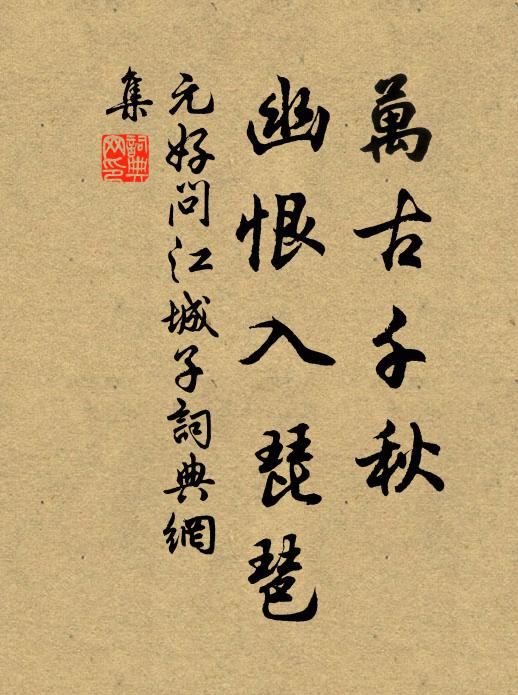 萬古千秋
幽恨入琵琶
元好問江城子詞典網
集
詞典網印